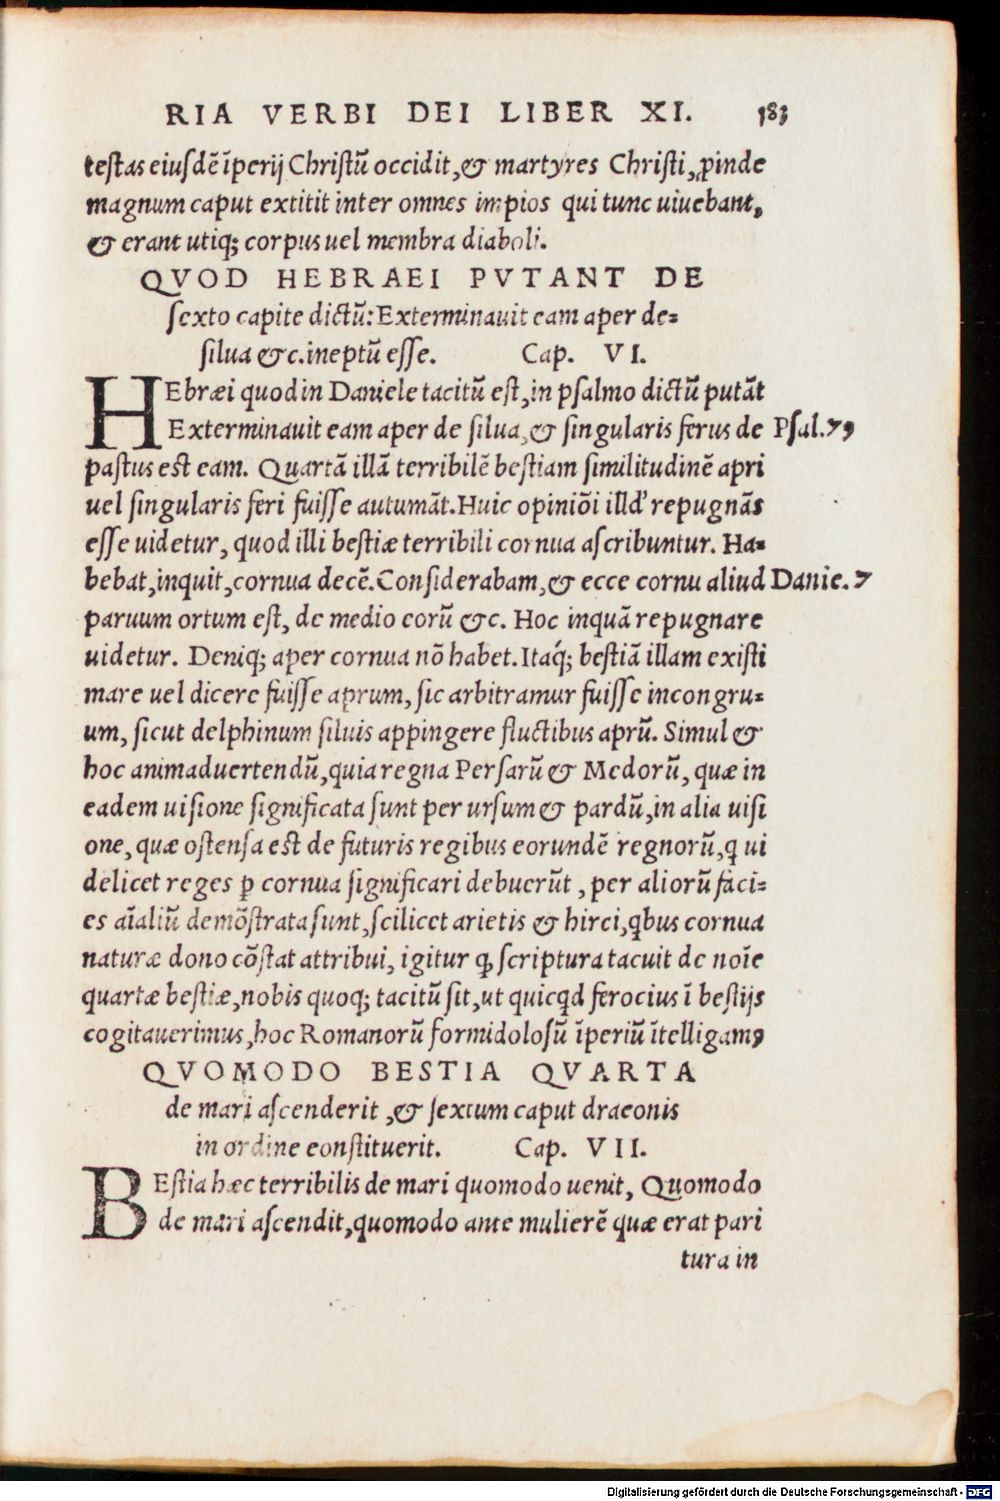 RIA VERBI DEI LIBER XI. 183
teſtas eiuſdē īperij Chriſtū occidit, & martyres Chriſti, ꝓinde
magnum caput extitit inter omnes impios qui tunc uiuebant,
& erant utiq; corpus uel membra diaboli.
QVOD HEBRAEI PVTANT DE
ſexto capite dictū: Exterminauit eam aper de=
ſilua &c. ineptū eſſe. Cap. VI.
HEbræi quod in Daniele tacitū eſt, in pſalmo dictū putāt
Exterminauit eam aper de ſilua, & ſingularis ferus de Pſal. 79
paſtus est eam. Quartā illā terribilē beſtiam ſimilitudinē apri
uel ſingularis feri fuiſſe autumāt. Huic opiniōi illđ repugnās
eſſe uidetur, quod illi beſtiæ terribili cornua aſcribuntur. Ha=
bebat, inquit, cornua decē. Conſiderabam, & ecce cornu aliud Danie. 7
paruum ortum eſt, de medio eorū &c. Hoc inquā repugnare
uidetur. Deniq; aper cornua nō habet. Itaq́; beſtiā illam exiſti
mare uel dicere fuiſſe aprum, ſic arbitramur fuiſſe incongru=
um, ſicut delphinum ſiluis appingere fluctibus aprū. Simul &
hoc animaduertendū, quia regna Perſarū & Medorū, quæ in
eadem uiſione ſignificata ſunt per urſum & pardū, in alia uiſi
one, quæ oſtenſa est de futuris regibus eorundē regnorū, q ui
delicet reges ꝑ cornua ſignificari debuerūt, per aliorū faci=
es aīaliū demōſtrata ſunt, ſcilicet arietis & hirci, qbus cornua
naturæ dono cōſtat attribui, igitur ꝙ ſcriptura tacuit de noīe
quartæ beſtiæ, nobis quoq; tacitū ſit, ut quicqd ferocius ī beſtijs
cogitauerimus, hoc Romanorū formidoloſū īperiū ītelligamꝰ
QVOMODO BESTIA QVARTA
de mari aſcenderit, & ſextum caput draconis
in ordine conſtituerit. Cap. VII.
BEſtia hæc terribilis de mari quomodo uenit, Quomodo
de mari aſcendit, quomodo ante mulierē quæ erat pari
tura in
Digitalisierung gefördert durch die Deutsche Forschungsgemeinschaft - DFG